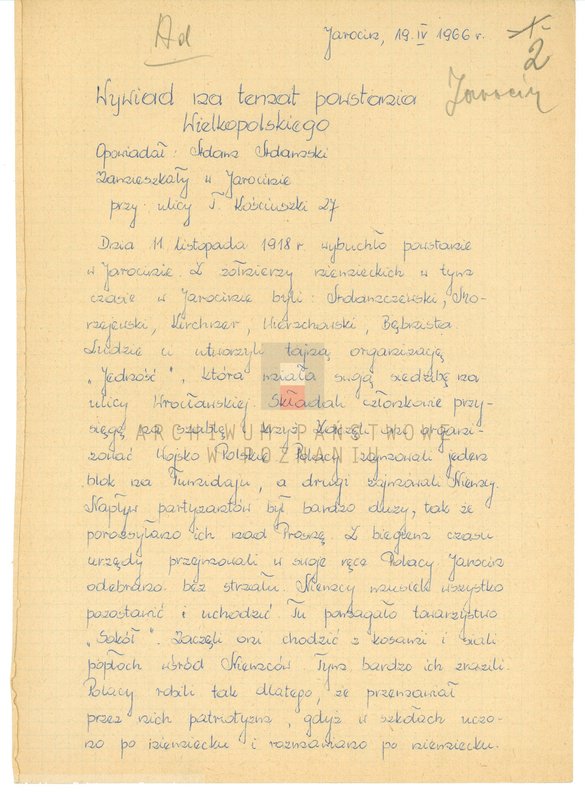 Ad
Jarocin, 19.IV 1966 r.
2
Jarocin
Wywiad na temat powstania
Wielkopolskiego
Opowiadał: Adam Adamski
Zamieszkały w Jarocinie
przy ulicy T. Kościuszki 27
Dnia 11 listopada 1918 r. wybuchło powstanie
w Jarocinie. Z żołnierzy niemieckich w tym
czasie w Jarocinie byli: Adamczewski,
Kirchner, Wierzchowski,
Ludzie ci utworzyli tajną organizację
„Jedność", która miała swoją siedzibę na
ulicy Wrocławskiej. Składali członkowie przy-
sięgę na szablę i krzyż. Zaczęli oni organi-
ARCHIWUM PAŃSTWOWE
zować Wojsko Polskie. Polacy zajmowali jeden
W POZNANIU
blok na a drugi zajmowali Niemcy.
Napływ partyzantów był bardzo duży, tak że
porozsyłano ich nad Prosnę. Z biegiem czasu
urzędy przejmowali w swoje ręce Polacy. Jarocin
odebrano bez strzału. Niemcy musieli wszystko
pozostawić i uchodzić. Tu pomagało towarzystwo
„Sokół". Zaczęli oni chodzić z kosami i siali
popłoch wśród Niemców. Tym bardzo ich zrazili.
Polacy robili tak dlatego, że przemawiał
przez nich patriotyzm, gdyż w szkołach uczo-
no po niemiecku i rozmawiano po niemiecku.